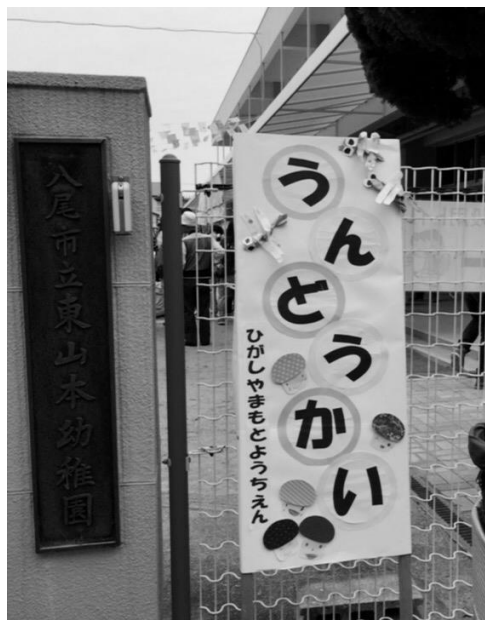 八尾市立東山本幼稚園
うんどうかい
ひがしやまもとようちえん